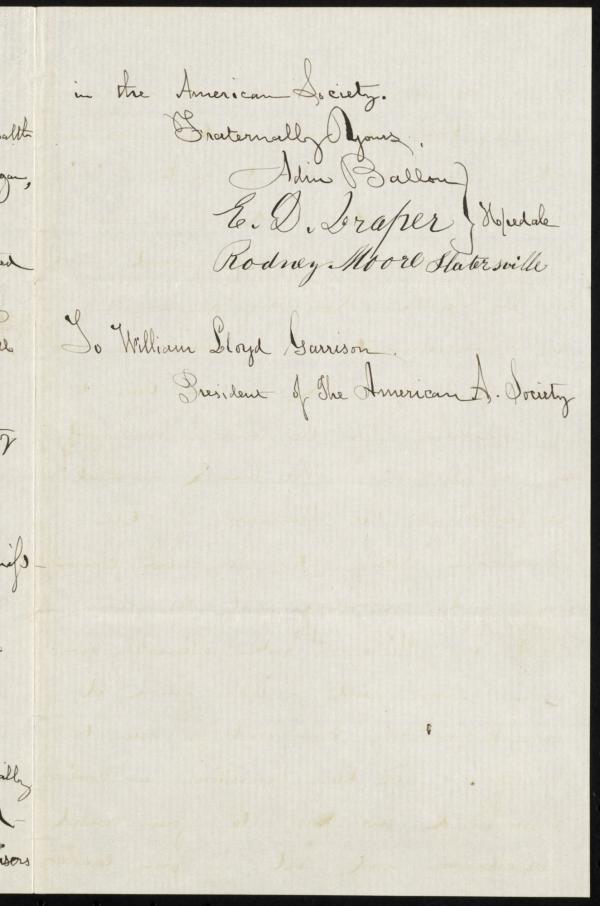 in the American Society.
Fraternally Yours,
Adin Ballou
E. D. Draper } Hopedale
Rodney Moore Slatersville
To William Lloyd Garrison.
President of The American A. Society